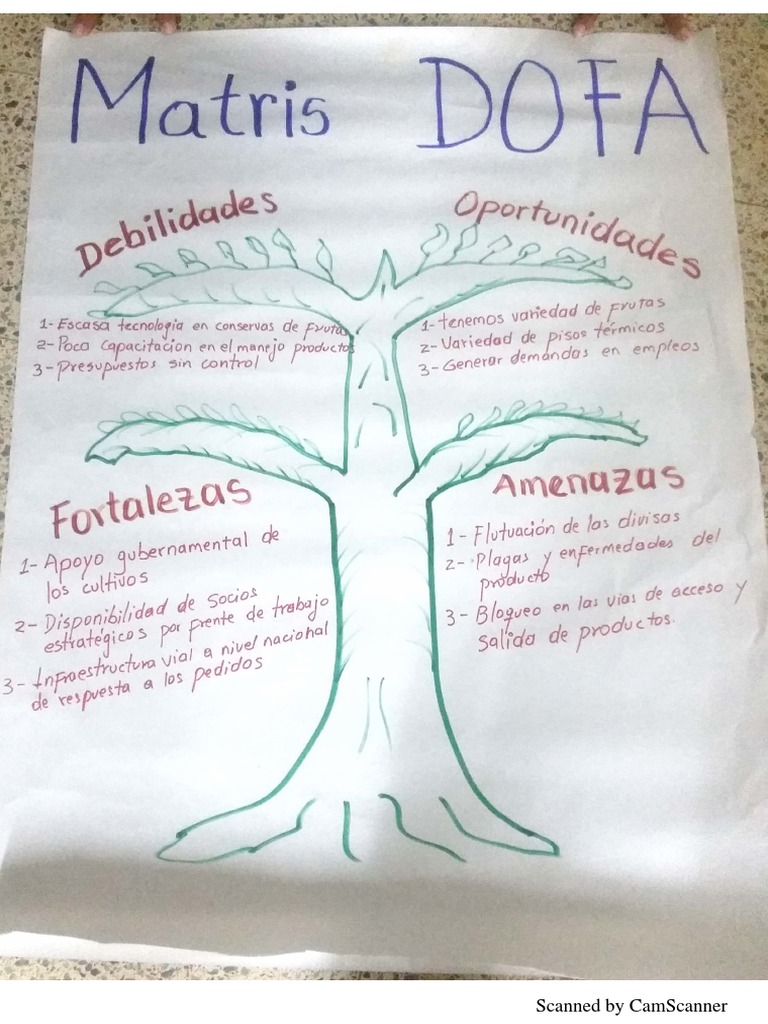 Matris DOFA
Debilidades
1- Escasa tecnologia en conservas de frutas
2- Poca capacitacion en el manejo productos
3- Presupuestos sin control
Oportunidades
1- tenemos variedad de frutas
2- Variedad de pisos térmicos
3- Generar demandas en empleos
Fortalezas
1- Apoyo gubernamental de
los cultivos
2- Disponibilidad de socios
estratégicos por frente de trabajo
3- Infraestructura vial a nivel nacional
de respuesta a los pedidos
Amenazas
1- Flutuación de las divisas
2- Plagas y enfermedades del
producto
3- Bloqueo en las vias de acceso y
salida de productos.
Scanned by CamScanner